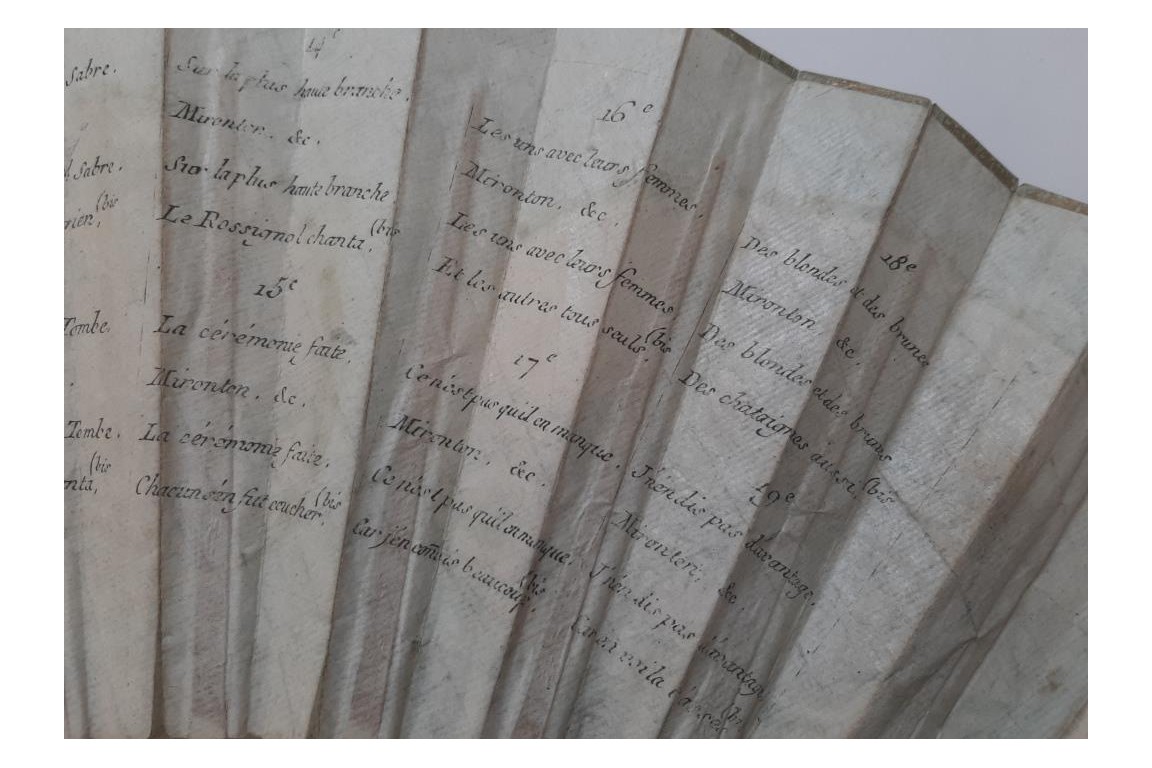 Sabre.
Sabre.
rien, (bis
Tombe.
Tombe.
nta, (bis
14e
Sur la plus haute branche.
Mironton. &c.
Sur la plus haute branche
Le Rossignol chanta. (bis
15e
La cérémonie faite.
Mironton. &c.
La cérémonie faite.
Chacun s'en fut coucher. (bis
16e
Les uns avec leurs femmes.
Mironton. &c.
Les uns avec leurs femmes
Et les autres tous seuls. (bis
17e
Ce n'est pas qu'il en manque.
Mironton. &c.
Ce n'est pas qu'il en manque.
Car j'en connois beaucoup. (bis
18e
Des blondes et des brunes
Mironton &c.
Des blondes et des bruns
Des chataignes aussi. (bis
19e
J'n'en dis pas davantage.
Mironton. &c.
J'n'en dis pas d'avantage
Car en voila (bis